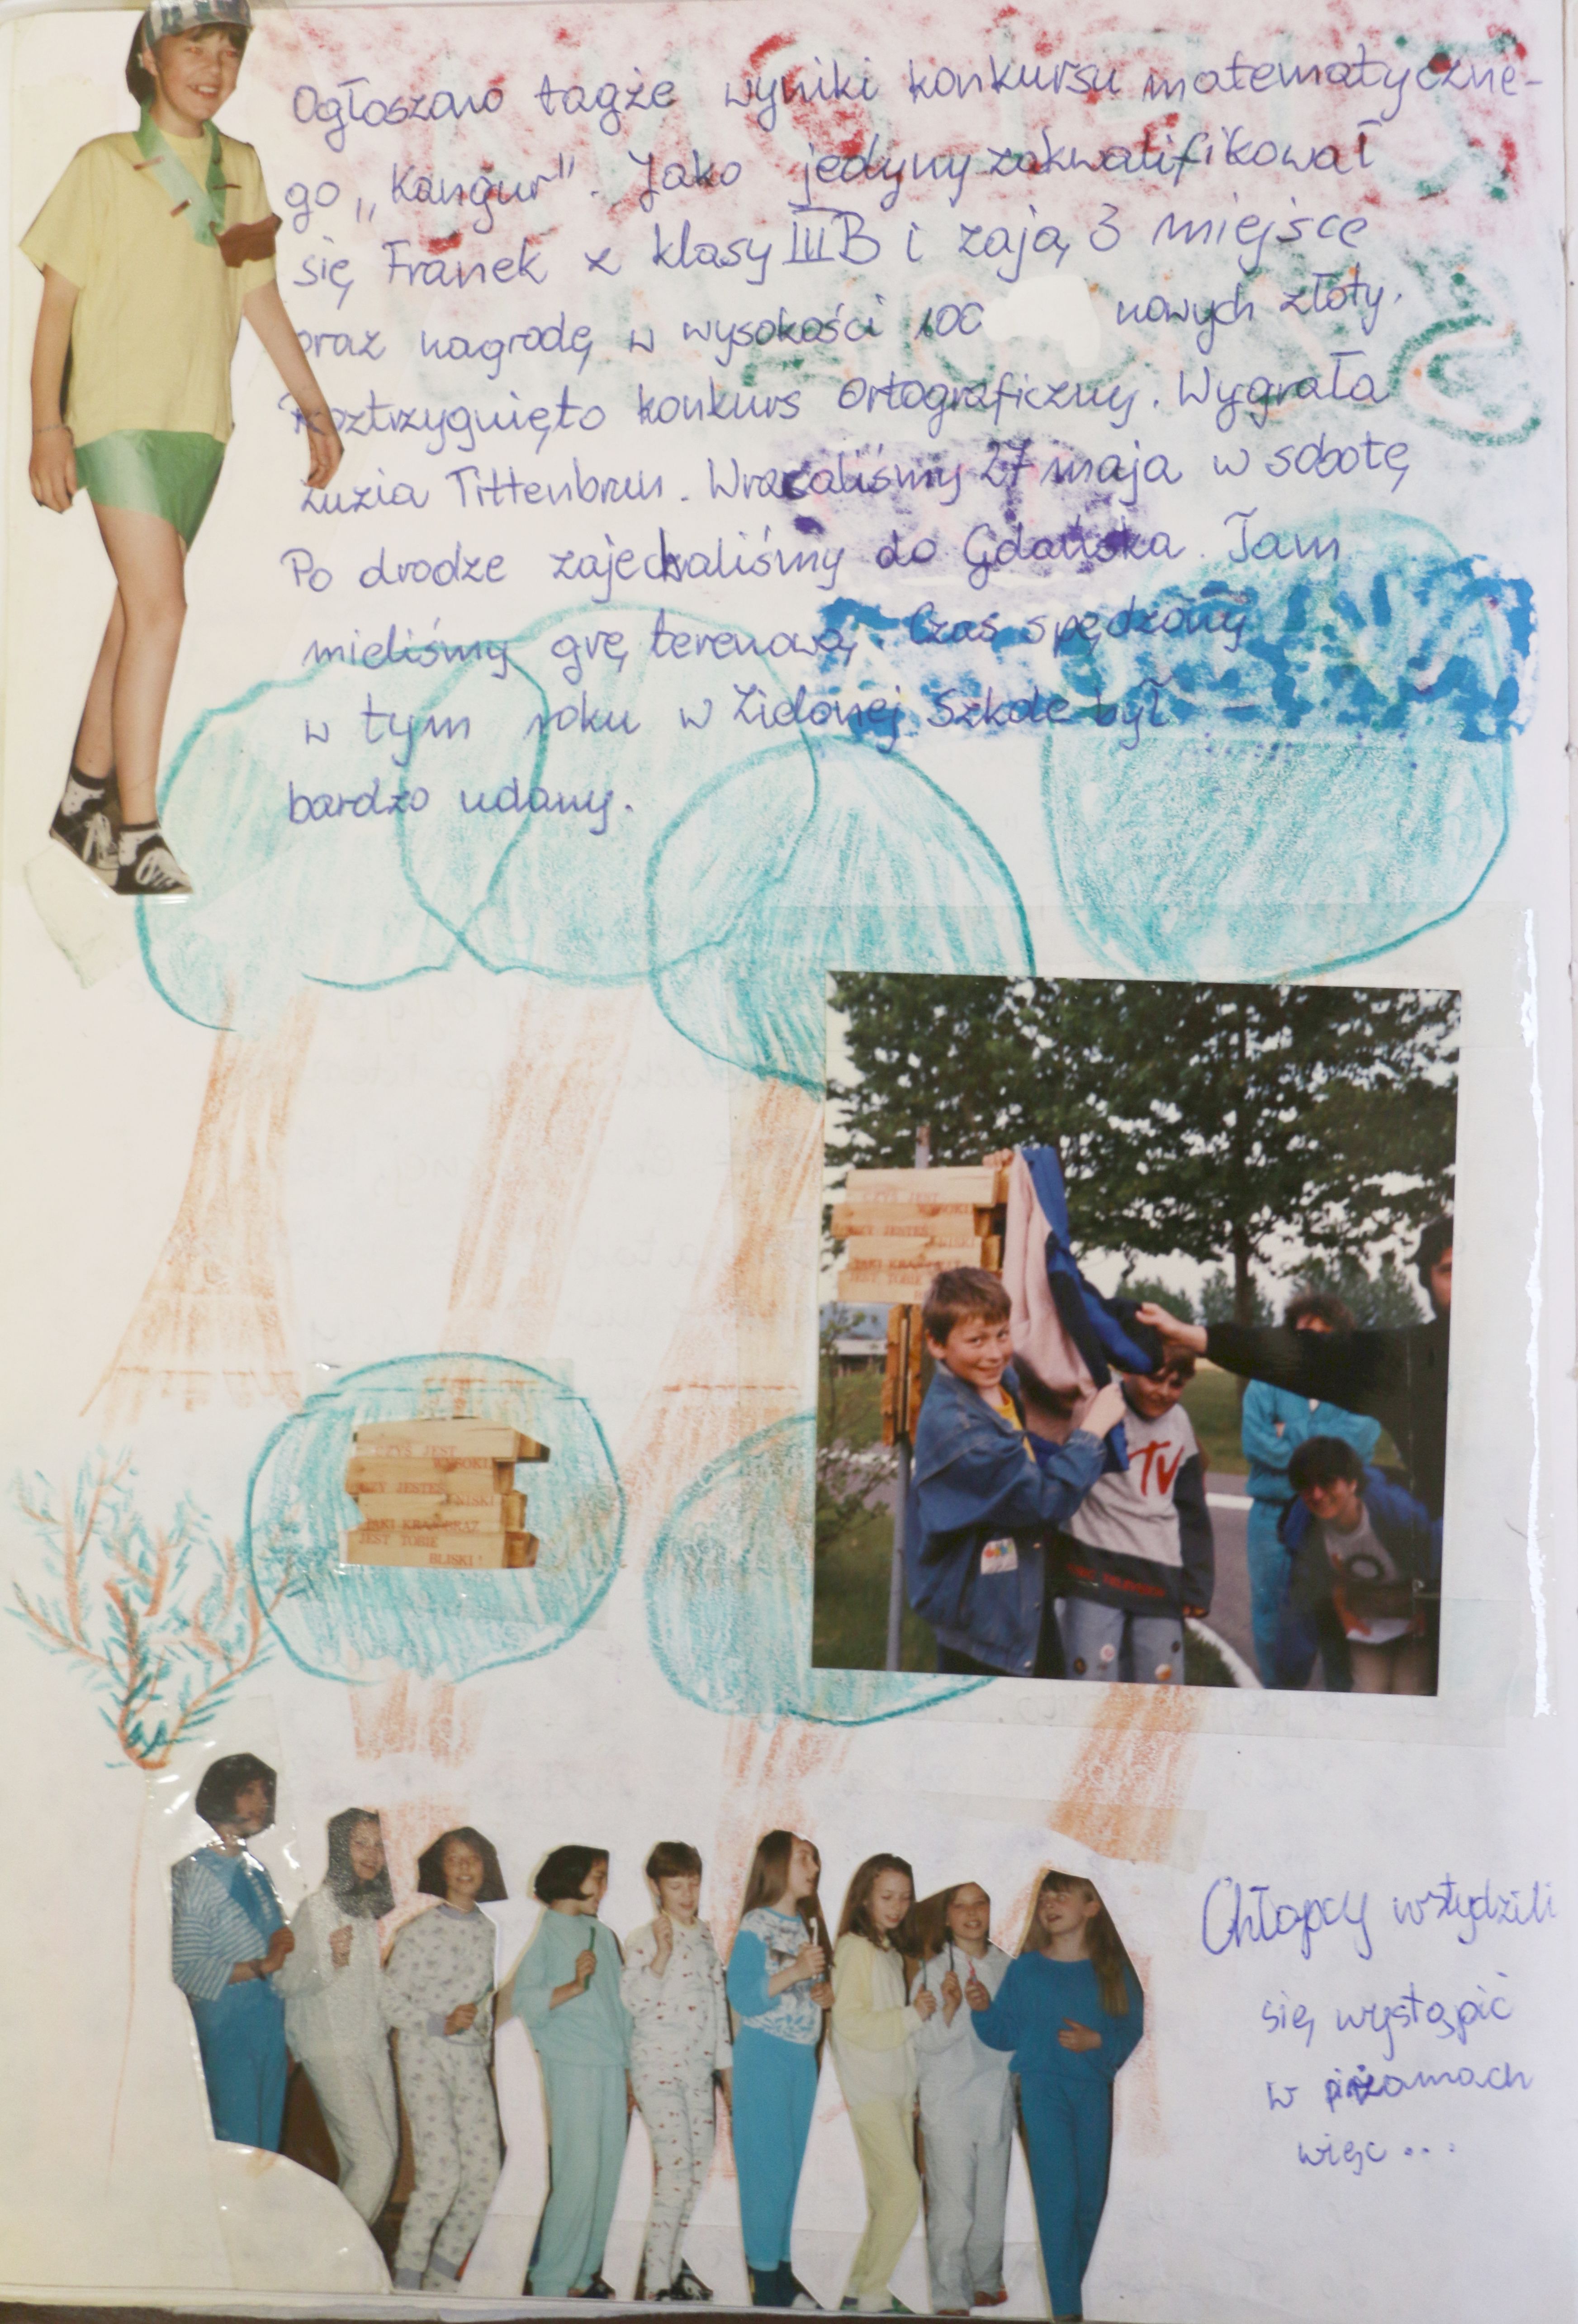 Ogłoszono tagże wyniki konkursu matematyczne-
go „Kangur". Jako jedyny zakwalifikował
się Franek z klasy III B i zają 3 miejsce
oraz nagrodę w wysokości 100 nowych złoty.
Roztrzygnięto konkurs Ortograficzny. Wygrała
Zuzia Tittenbrun. Wracaliśmy 27 maja w sobotę
Po drodze zajechaliśmy do Gdańska. Tam
mieliśmy grę terenową. Czas spędzony
w tym roku w Zielonej Szkole był
bardzo udany.
CZYŚ JEST
WYSOKI
CZY JESTEŚ
NISKI
JAKI KRAJOBRAZ
JEST TOBIE
CZYŚ JEST
WYSOKI
CZY JESTEŚ
NISKI
JAKI KRAJOBRAZ
JEST TOBIE
BLISKI!
TV
Chłopcy wstydzili
się wystąpić
w piżamach
więc ...